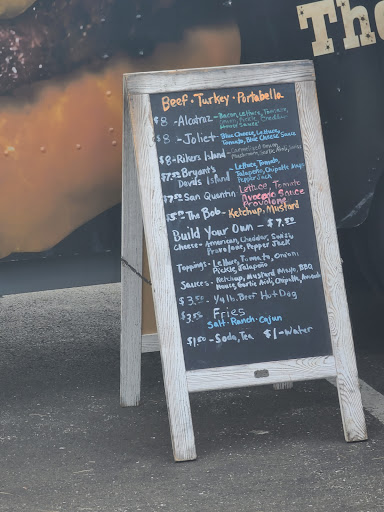 The
Beef · Turkey · Portabella
$8 - Alcatraz - Bacon, Lettuce, Tomato,
Onion, Pickle, Cheddar
House Sauce
$8 - Joliet - Blue Cheese, Lettuce,
Tomato, Blue Cheese Sauce
$8 - Rikers Island - Caramelized Onion,
Mushroom, Garlic Aioli,
$7.50 Bryant's Devils Island - Lettuce, Tomato,
Jalapeño, Chipotle Mayo
Pepper Jack
$7.50 San Quentin - Lettuce, Tomato
Avocado Sauce
Provolone
$5.00 The Bob - Ketchup, Mustard
Build Your Own - $7.50
Cheese - American, Cheddar, Swiss,
Provolone, Pepper Jack
Toppings - Lettuce, Tomato, Onion
Pickle, Jalapeño
Sauces - Ketchup, Mustard, Mayo, BBQ
House, Garlic Aioli, Chipotle, Avocado
$3.50 - 1/4 lb. Beef Hot Dog
$3.50 Fries
Salt · Ranch · Cajun
$1.50 - Soda, Tea $1 - Water